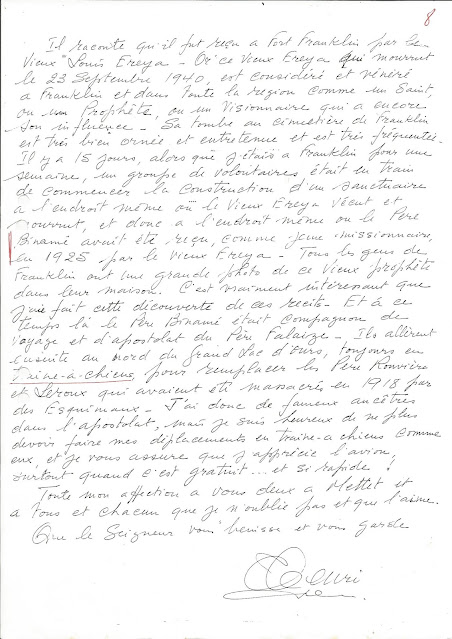 8
Il raconte qu'il fut reçu a Fort Franklin par le
Vieux "Louis Ereya - Or ce vieux Ereya qui mourrut
le 23 Septembre 1940, est considéré et vénéré
a Franklin et dans toute la region comme un Saint,
ou un Prophète, ou un Visionnaire qui a encore
son influence - Sa tombe au cimetière de Franklin
est très bien ornée et entretenue et est très fréquentée.
Il y a 15 jours, alors que j'étais a Franklin pour une
semaine, un groupe de volontaires était en train
de commencer la construction d'un sanctuaire
a l'endroit même où le Vieux Ereya vécut et
mourrut, et donc a l'endroit même ou le Père
Binamé avait été reçu, comme jeune missionnaire,
en 1925 par le Vieux Ereya - Tous les gens de
Franklin ont une grande photo de ce vieux prophète
dans leur maison. C'est vraiment intéressant que
j'aie fait cette découverte de ces recits. Et à ce
temps là le Père Binamé était Compagnon de
Voyage et d'apostolat du Père Falaize - Ils allèrent
ensuite au nord du Grand Lac d'Ours, toujours en
Traine-à-chiens, pour remplacer les Père Rouvière
et Leroux qui avaient été massacrés en 1918 par
des Esquimaux - J'ai donc de fameux ancêtres
dans l'apostolat, mais je suis heureux de ne plus
devoir faire mes déplacements en traine-a chiens comme
eux, et je vous assure que j'apprécie l'avion,
surtout quand c'est gratuit... et si rapide !
Toute mon affection a vous deux a Mettet et
a tous et chacun que je n'oublie pas et que j'aime.
Que le Seigneur vous benisse et vous garde
Henri